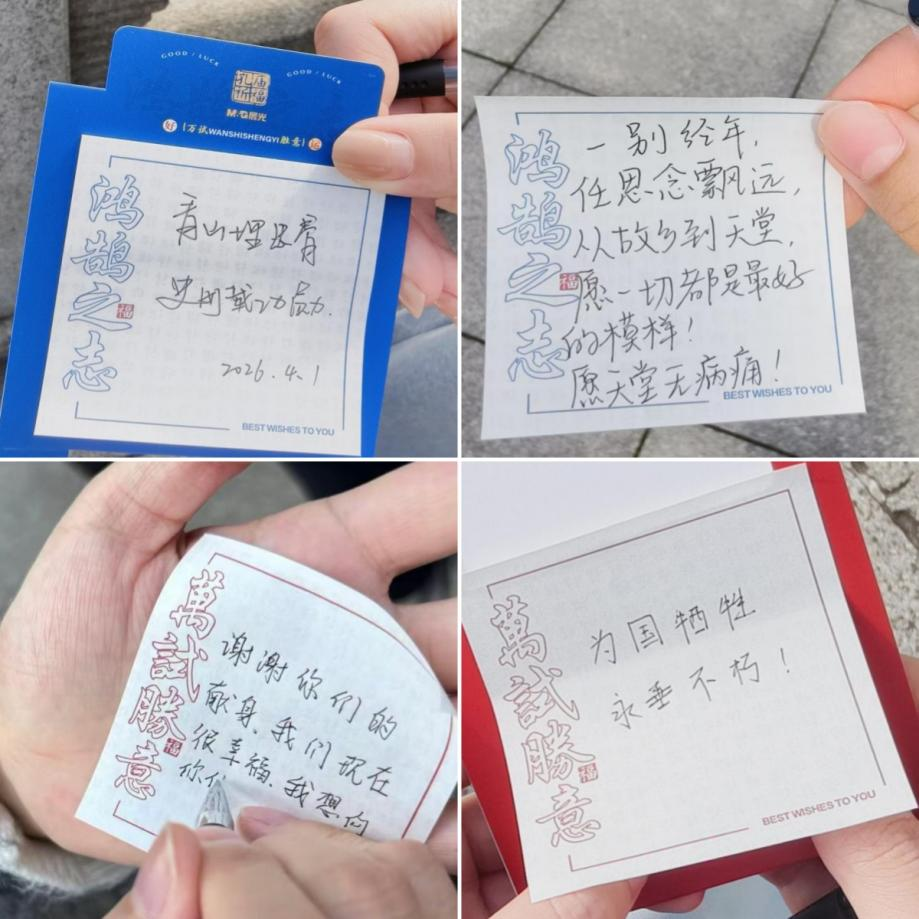 GOOD / LUCK
GOOD / LUCK
M&G晨光
好
万试WANSHISHENGYI胜意
运
鸿鹄之志
福
青山埋忠骨
史册载功勋.
2026.4.1
BEST WISHES TO YOU
鸿鹄之志
福
一别经年,
任思念飘远,
从故乡到天堂,
愿一切都是最好
的模样!
愿天堂无病痛!
BEST WISHES TO YOU
萬試勝意
福
谢谢你们的
献身,我们现在
很幸福,我想向
你们
萬試勝意
福
为国牺牲
永垂不朽!
BEST WISHES TO YOU